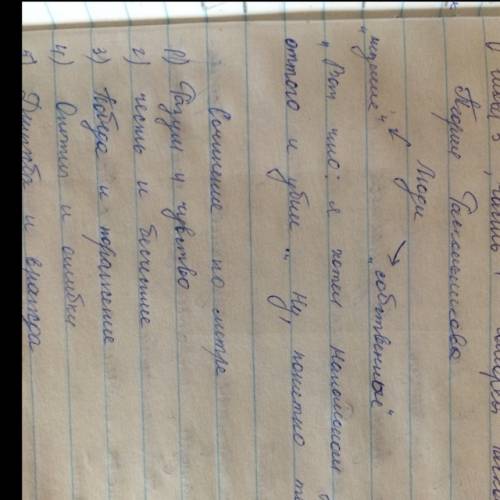 часть
Теория Раскольникова
Люди
"низшие" "собственные"
"Вот что: я хотел Наполеоном
оттого и убил... Ну, понятно
Сочинение по литре
1) Разум и чувство
2) честь и бесчестие
3) Победа и поражение
4) Опыт и ошибки
5) Дружба и вражда